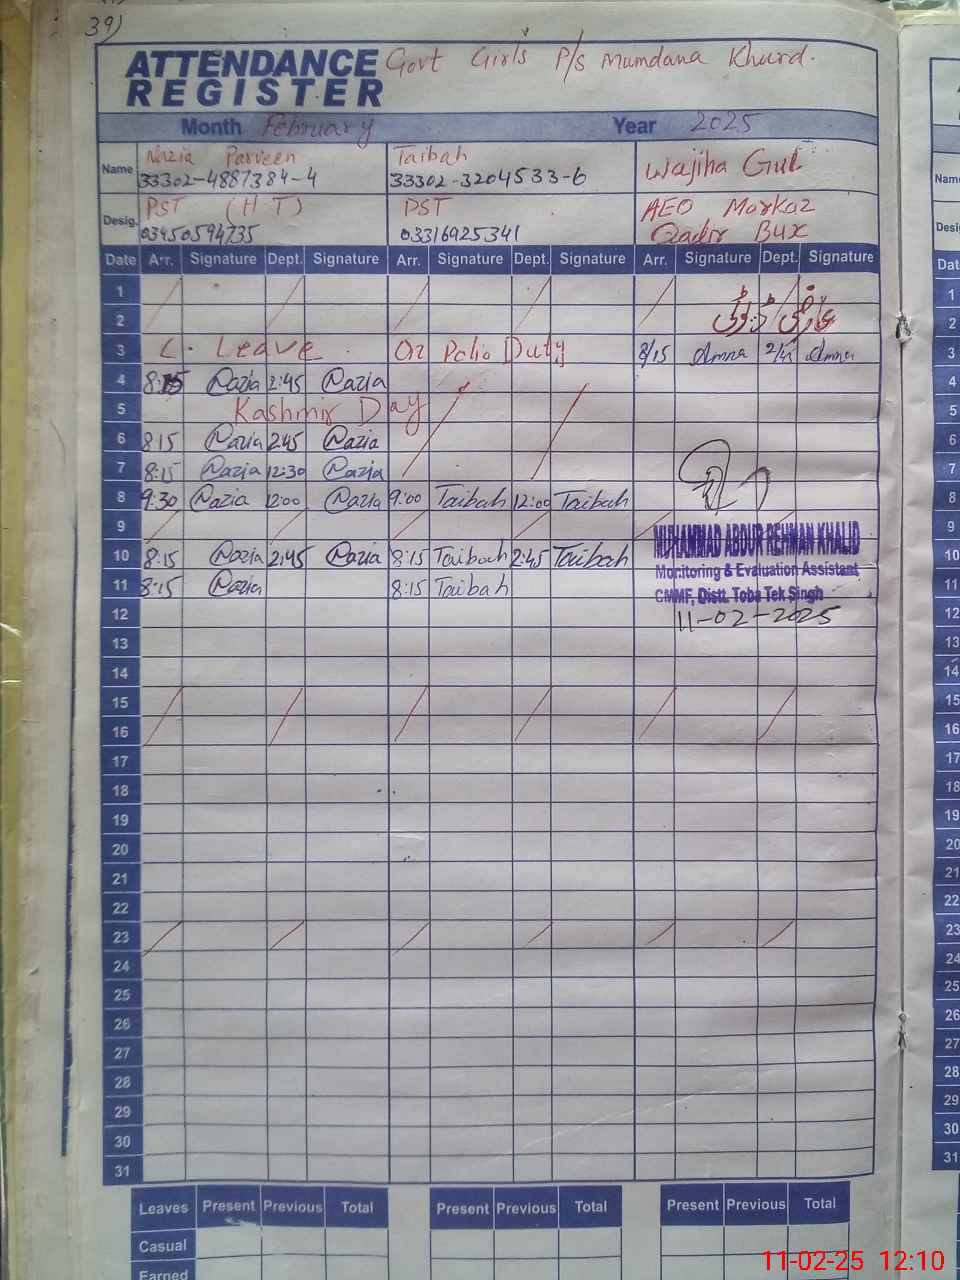 39)
ATTENDANCE Govt Girls P/s Mumdana Khurd.
REGISTER
Month February Year 2025
Name Nazia Parveen Taibah Wajiha Gul
33302-4887384-4 33302-3204533-6
Desig. PST (HT) PST AEO Markaz
03450594735 03316925341 Qadir Bux
Date Arr. Signature Dept. Signature Arr. Signature Dept. Signature Arr. Signature Dept. Signature
1
2 عارضی ڈیوٹی
3 C. Leave On Polio Duty 8/15 Amna 2/45 Amna
4 8:15 Nazia 2:45 Nazia
5 Kashmir Day
6 8:15 Nazia 2:45 Nazia
7 8:15 Nazia 12:30 Nazia
8 9:30 Nazia 12:00 Nazia 9:00 Taibah 12:00 Taibah
9 MUHAMMAD ABDUR REHMAN KHALID
10 8:15 Nazia 2:45 Nazia 8:15 Taibah 2:45 Taibah Monitoring & Evaluation Assistant
11 8:15 Nazia 8:15 Taibah CMMF, Distt. Toba Tek Singh
12 11-02-2025
13
14
15
16
17
18
19
20
21
22
23
24
25
26
27
28
29
30
31
Leaves Present Previous Total Present Previous Total Present Previous Total
Casual
Earned
11-02-25 12:10
Name
Desig
Dat
1
2
3
4
5
6
7
8
9
10
11
12
13
14
15
16
17
18
19
20
21
22
23
24
25
26
27
28
29
30
31